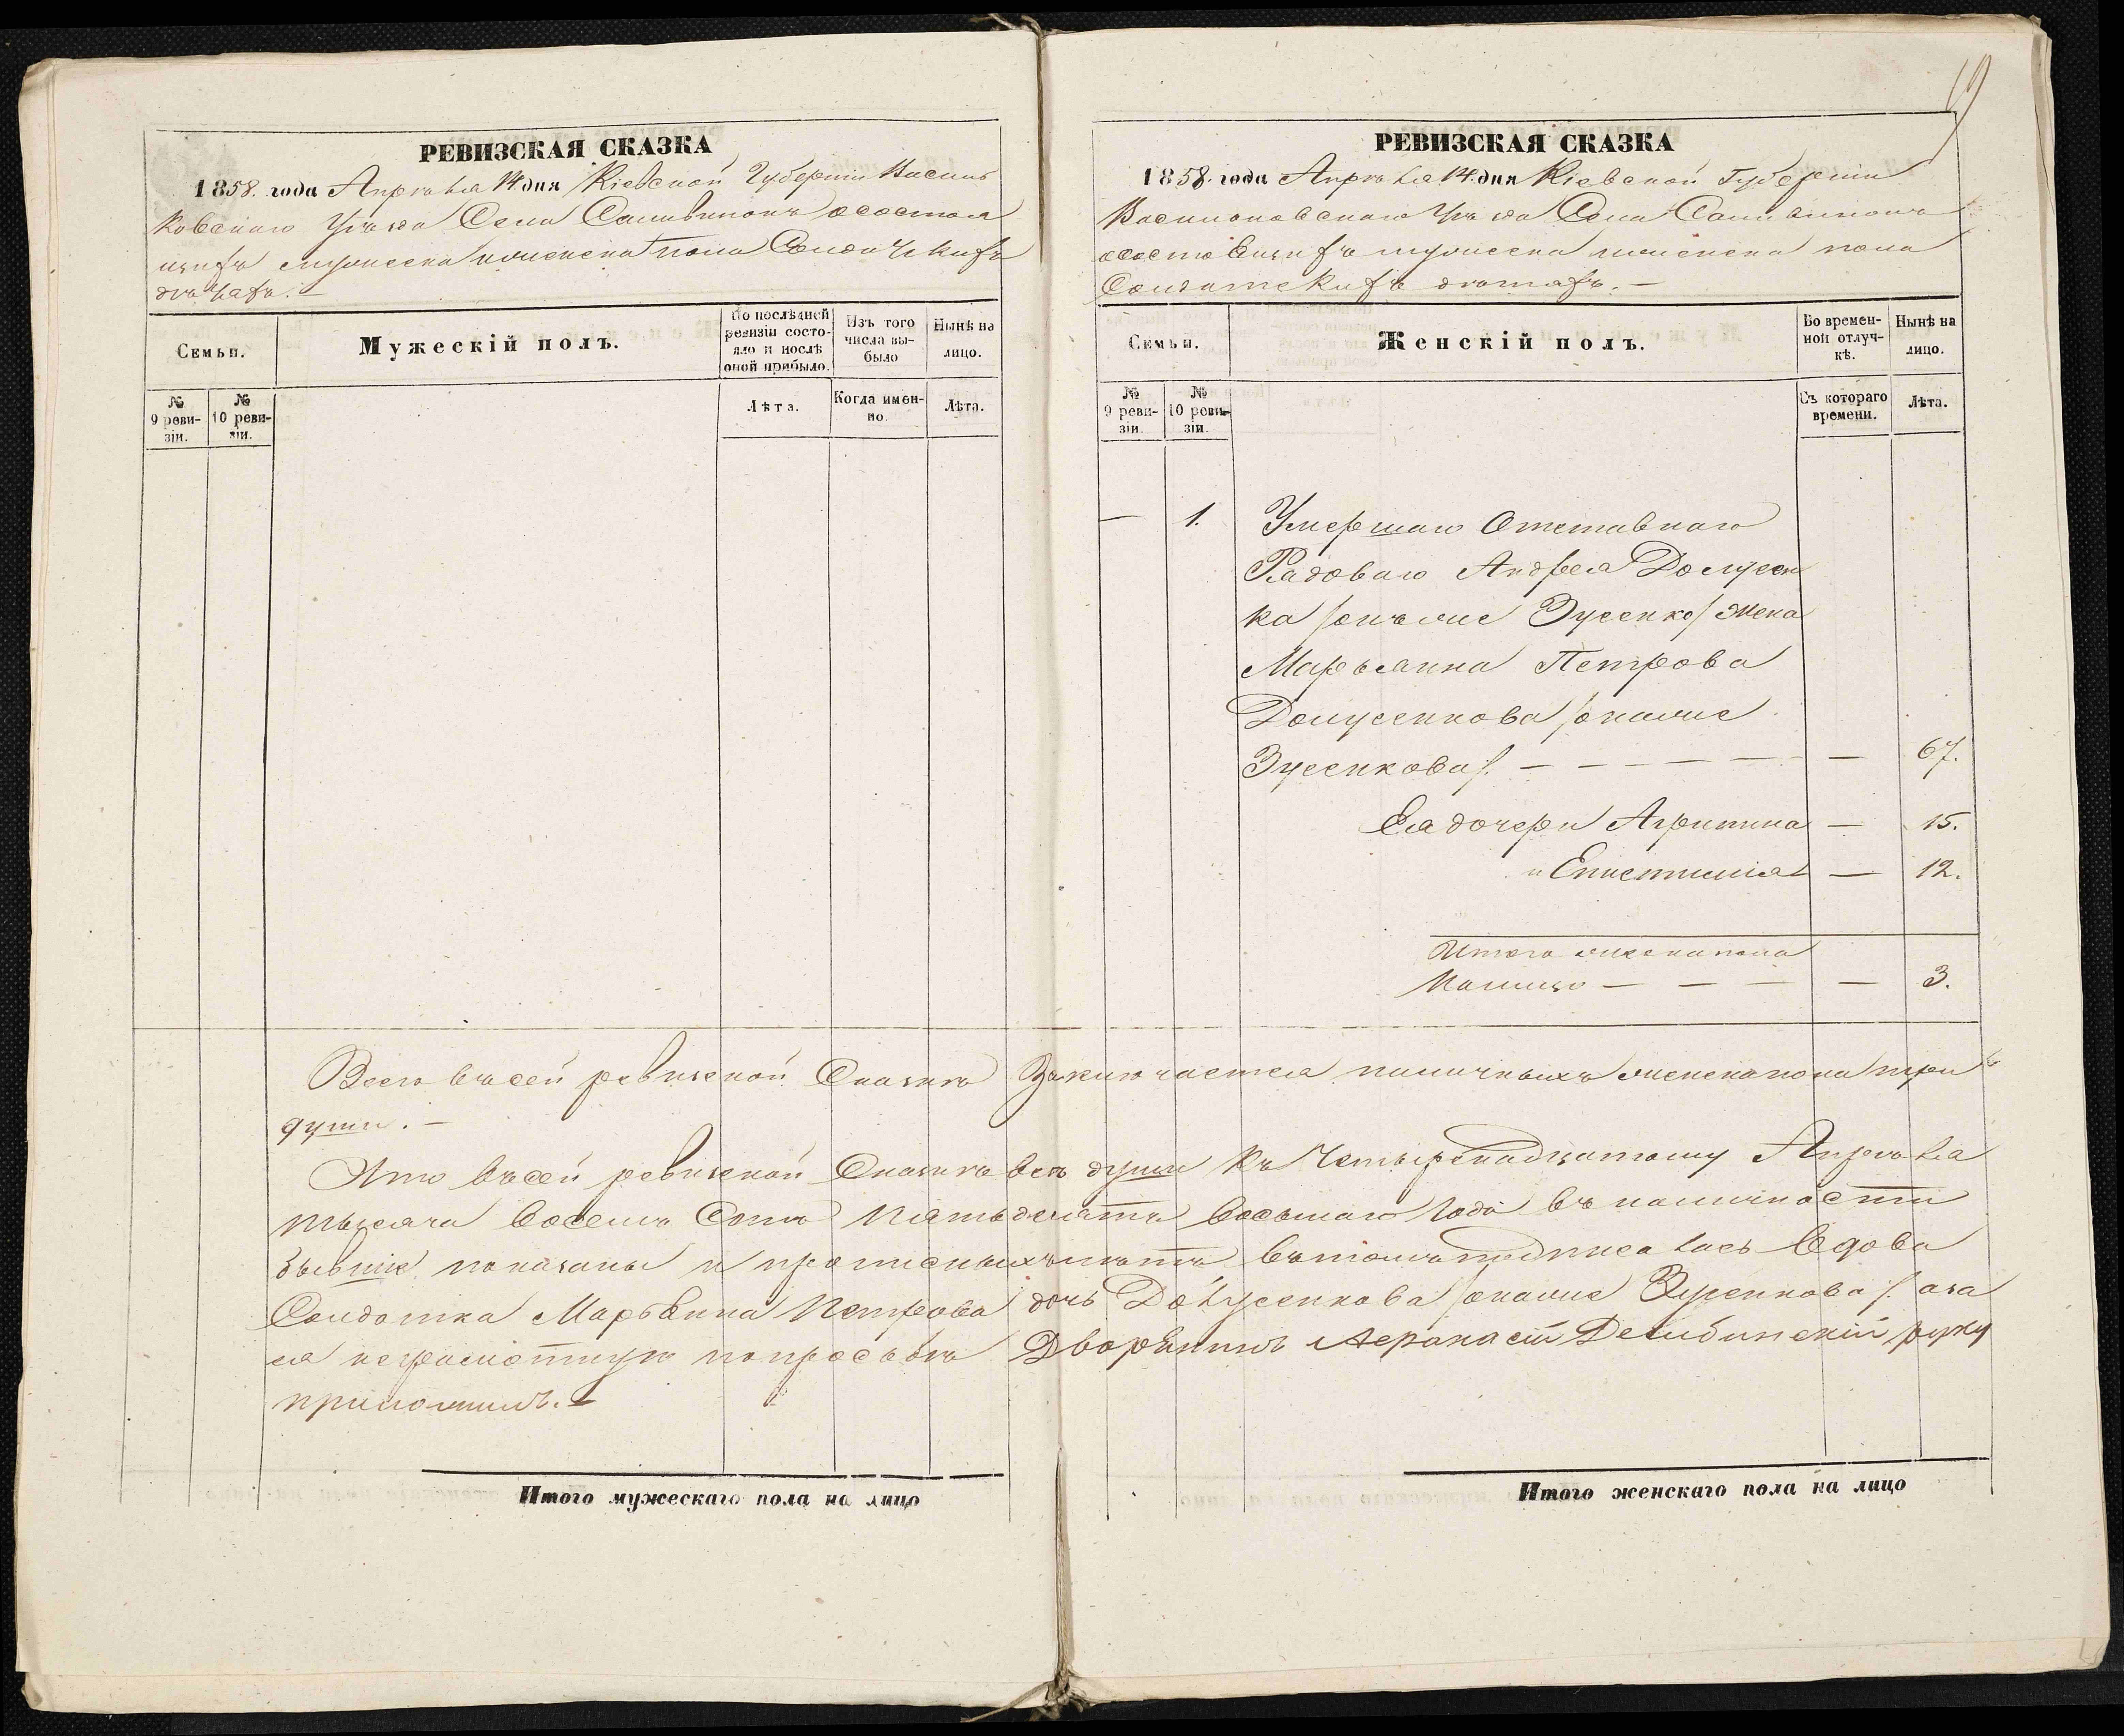 РЕВИЗСКАЯ СКАЗКА
1858. года Апрѣля 14 дня Кіевской Губерніи Василь
ковскаго Уѣзда Села о состоя
щихъ мужеска и женска пола Солдатскихъ
дѣтяхъ. —
Семьи.
Мужескій полъ.
По послѣдней ревизіи состо-
яло и послѣ
оной прибыло.
Изъ того
числа вы-
было
Нынѣ на
лицо.
№
9 реви-
зіи.
№
10 реви-
зіи.
Лѣта.
Когда имен-
но.
Лѣта.
19
РЕВИЗСКАЯ СКАЗКА
1858. года Апрѣля 14. дня Кіевской Губерніи
Васильковскаго Уѣзда Села
о состоящихъ мужеска и женска пола
Солдатскихъ дѣтяхъ. —
Семьи.
Женскій полъ.
Во времен-
ной отлуч-
кѣ.
Нынѣ на
лицо.
№
9 реви-
зіи.
№
10 реви-
зіи.
Съ котораго
времени.
Лѣта.
— 1. Умершаго Отставнаго
Рядоваго Андрея
ка /онъ же Зусенко/ жена
Марьянна Петрова
/она же
Зусенкова/. — — — — — — 67.
Ея дочери Агрипина — 15.
и Епистимія — 12.
Итого женска пола
На лицо — — — — 3.
Всего въ сей ревизской Сказкѣ Заключается наличныхъ женска пола три
души. —
Что въ сей ревизской Сказкѣ всѣ души къ Четырнадцатому Апрѣля
тысяча восемь Сотъ Пятьдесятъ восьмаго года въ наличности
бывшіе показаны и прописныхъ нѣтъ въ томъ подписалась Вдова
Солдатка Марьянна Петрова дочь /она же Зусенкова/. а за
ея неграмотную по просьбѣ Дворянинъ руку
приложилъ. —
Итого мужескаго пола на лицо
Итого женскаго пола на лицо